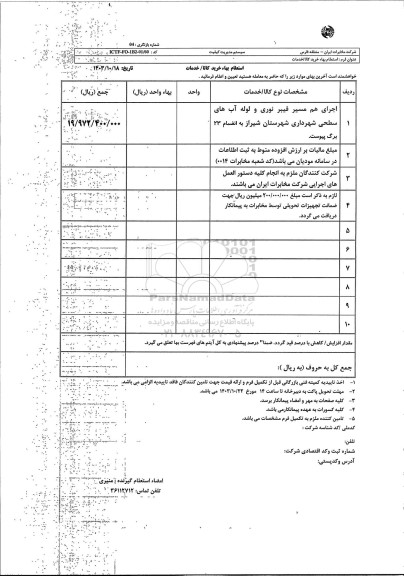 شماره بازنگری: ۵۸۱
شرکت مخابرات ایران - منطقه فارس
سیستم مدیریت کیفیت
کد: ICTF-FO-1B2-01/60
عنوان فرم: استعلام بهاء خرید کالا/خدمات
استعلام بهاء خرید کالا/ خدمات
تاریخ: ۱۴۰۳/۱۰/۱۸
خواهشمند است آخرین بهای موارد زیر را که حاضر به معامله هستید تعیین و اعلام فرمائید.
ردیف
مشخصات نوع کالا/خدمات
واحد
بهاء واحد (ریال)
جمع (ریال)
۱
اجرای هم مسیر فیبر نوری و لوله آب های
سطحی شهرداری شهرستان شیراز به انضمام ۲۳
برگ پیوست.
۱۹/۹۷۲/۴۰۰/۰۰۰
۲
مبلغ مالیات بر ارزش افزوده منوط به ثبت اطلاعات
در سامانه مودیان می باشد(کد شعبه مخابرات ۰۰۱۴)
۳
شرکت کنندگان ملزم به انجام کلیه دستور العمل
های اجرایی شرکت مخابرات ایران می باشند.
۴
لازم به ذکر است مبلغ ۲۰۰/۰۰۰/۰۰۰ میلیون ریال جهت
ضمانت تجهیزات تحویلی توسط مخابرات به پیمانکار
دریافت می گردد.
۵
۶
۷
۸
۹
۱۰
ParsNamadData
پایگاه اطلاع رسانی مناقصه و مزایده
مقدار افزایش/ کاهش با درصد قید گردد. ضمنا" درصد پیشنهادی به کل آیتم های فهرست بها تعلق می گیرد.
جمع کل به حروف (به ریال):
۱- اخذ تاییدیه کمیته فنی بازرگانی قبل از تکمیل فرم و ارائه قیمت جهت تامین کنندگان فاقد تاییدیه الزامی می باشد.
۲- مهلت تحویل پاکت به دبیرخانه تا ساعت ۱۴ مورخ ۱۴۰۳/۱۰/۲۴ می باشد.
۳- کلیه صفحات به مهر و امضاء پیمانکار برسد.
۴- کلیه کسورات به عهده پیمانکارمی باشد.
۵- تامین کننده ملزم به تکمیل فرم مشخصات می باشد.
کدملی /کد شناسه شرکت:
تلفن:
شماره ثبت وکد اقتصادی شرکت:
آدرس وکدپستی:
امضاء استعلام گیرنده: منیری
تلفن تماس: ۳۶۱۱۲۷۱۲